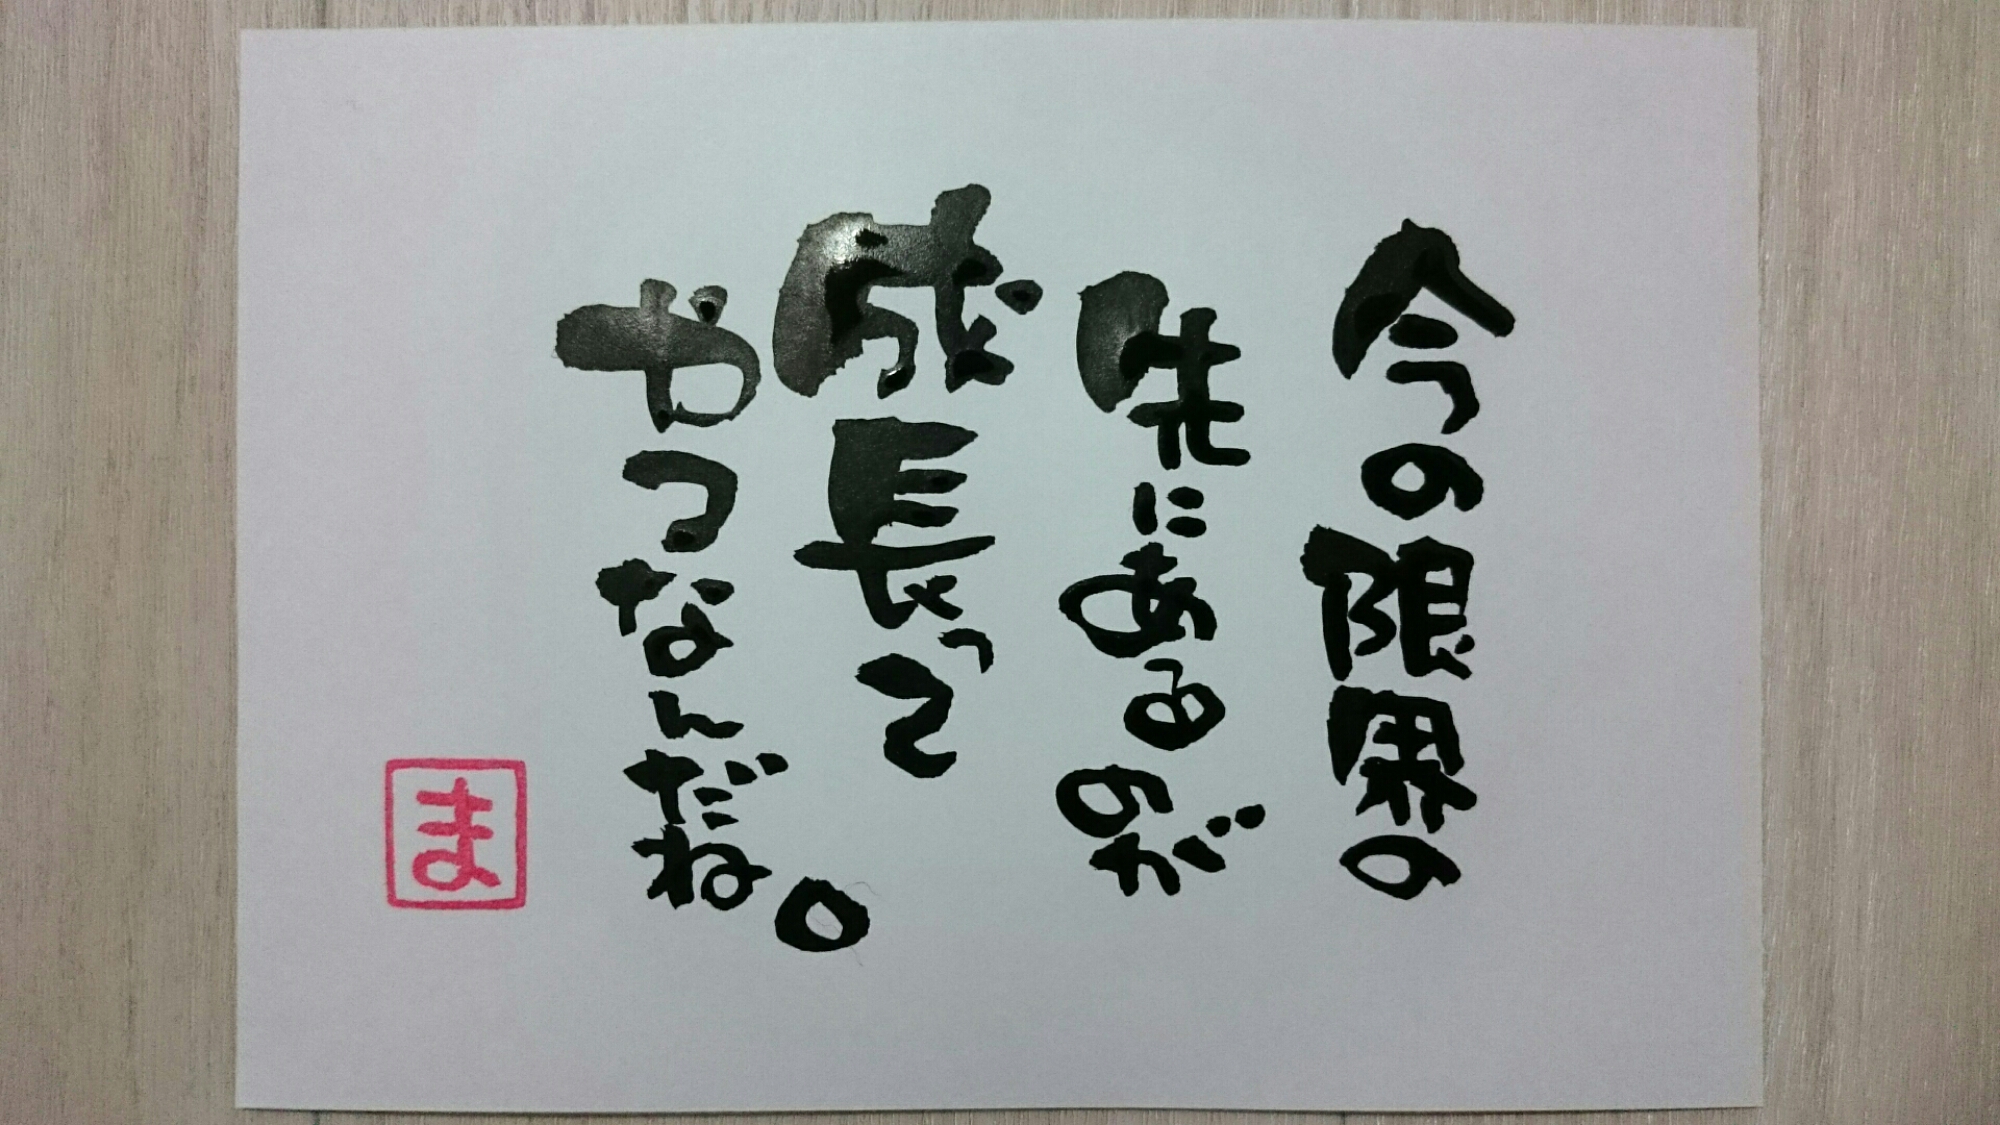 今の限界の
先にあるのが
成長って
やつなんだね。
ま